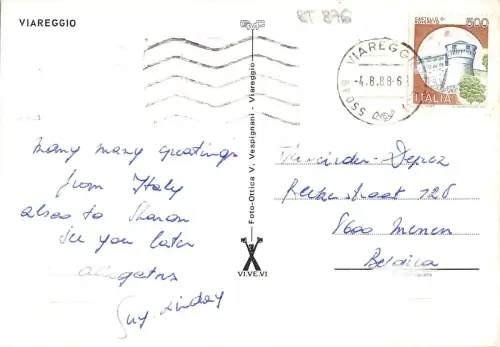 VIAREGGIO
GMC
BT 876
500
CASTELLO DI
ITALIA
VIAREGGIO
-4.8.88-6
55049
Foto-Ottica V. Vespignani - Viareggio
VI.VE.VI
many many greetings
from Italy
also to Sharon
see you later
allegators
Guy. Linday
Deprez
straat 128
8600 Menen
Belgica